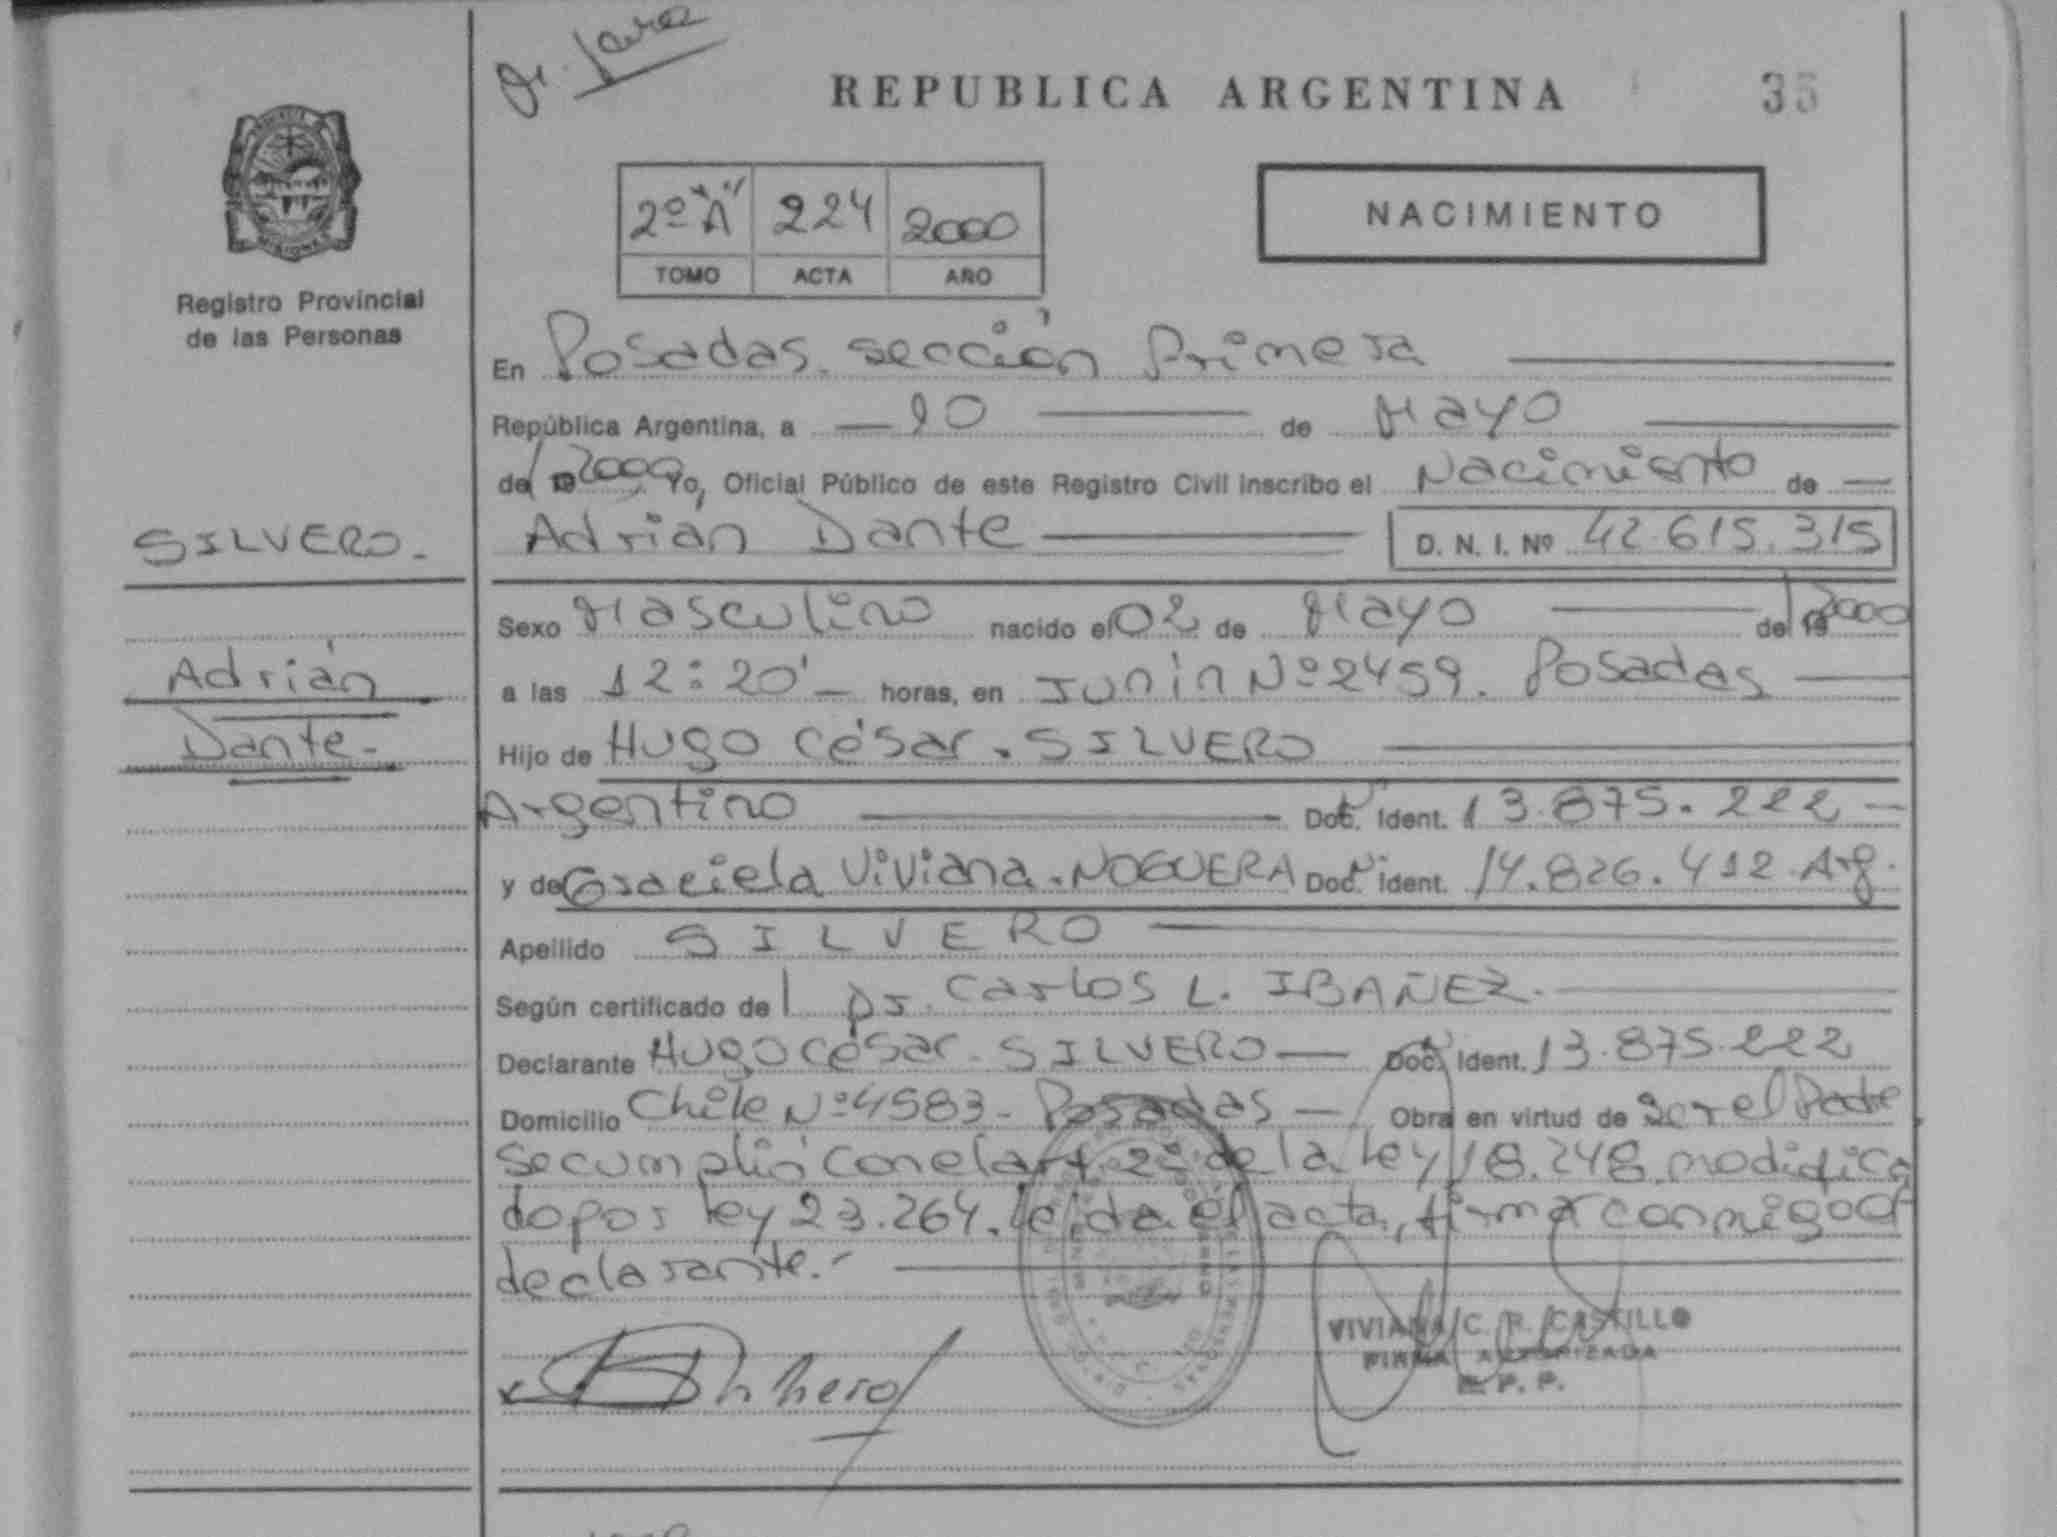 REPUBLICA ARGENTINA 35
2º "A" 224 2000
TOMO ACTA AÑO
NACIMIENTO
Registro Provincial
de las Personas
En Posadas. sección Primera
República Argentina, a 10 de Mayo
del 2000, Yo, Oficial Público de este Registro Civil inscribo el Nacimiento de
SILVERO.
Adrián Dante D. N. I. Nº 42.615.315
Sexo Masculino nacido el 02 de Mayo del 19 2000
Adrián
a las 12:20' horas, en Junin Nº 2459. Posadas
Dante.
Hijo de Hugo César. SILVERO
Argentino Doc. Ident. 13.875.222
y de Graciela Viviana. NOGUERA Doc. Ident. 14.826.412. Arg.
Apellido SILVERO
Según certificado del Dr. Carlos L. IBAÑEZ.
Declarante Hugo César. SILVERO Doc. Ident. 13.875.222
Domicilio Chile Nº 4583 - Posadas Obra en virtud de Ser el Padre,
Se cumplió con el art 2º de la Ley 18.248 modifica
do por ley 23.264. leida el acta, firma conmigo el
declarante.
VIVIANA C. R. CASTILLO
FIRMA AUTORIZADA
R. P. P.